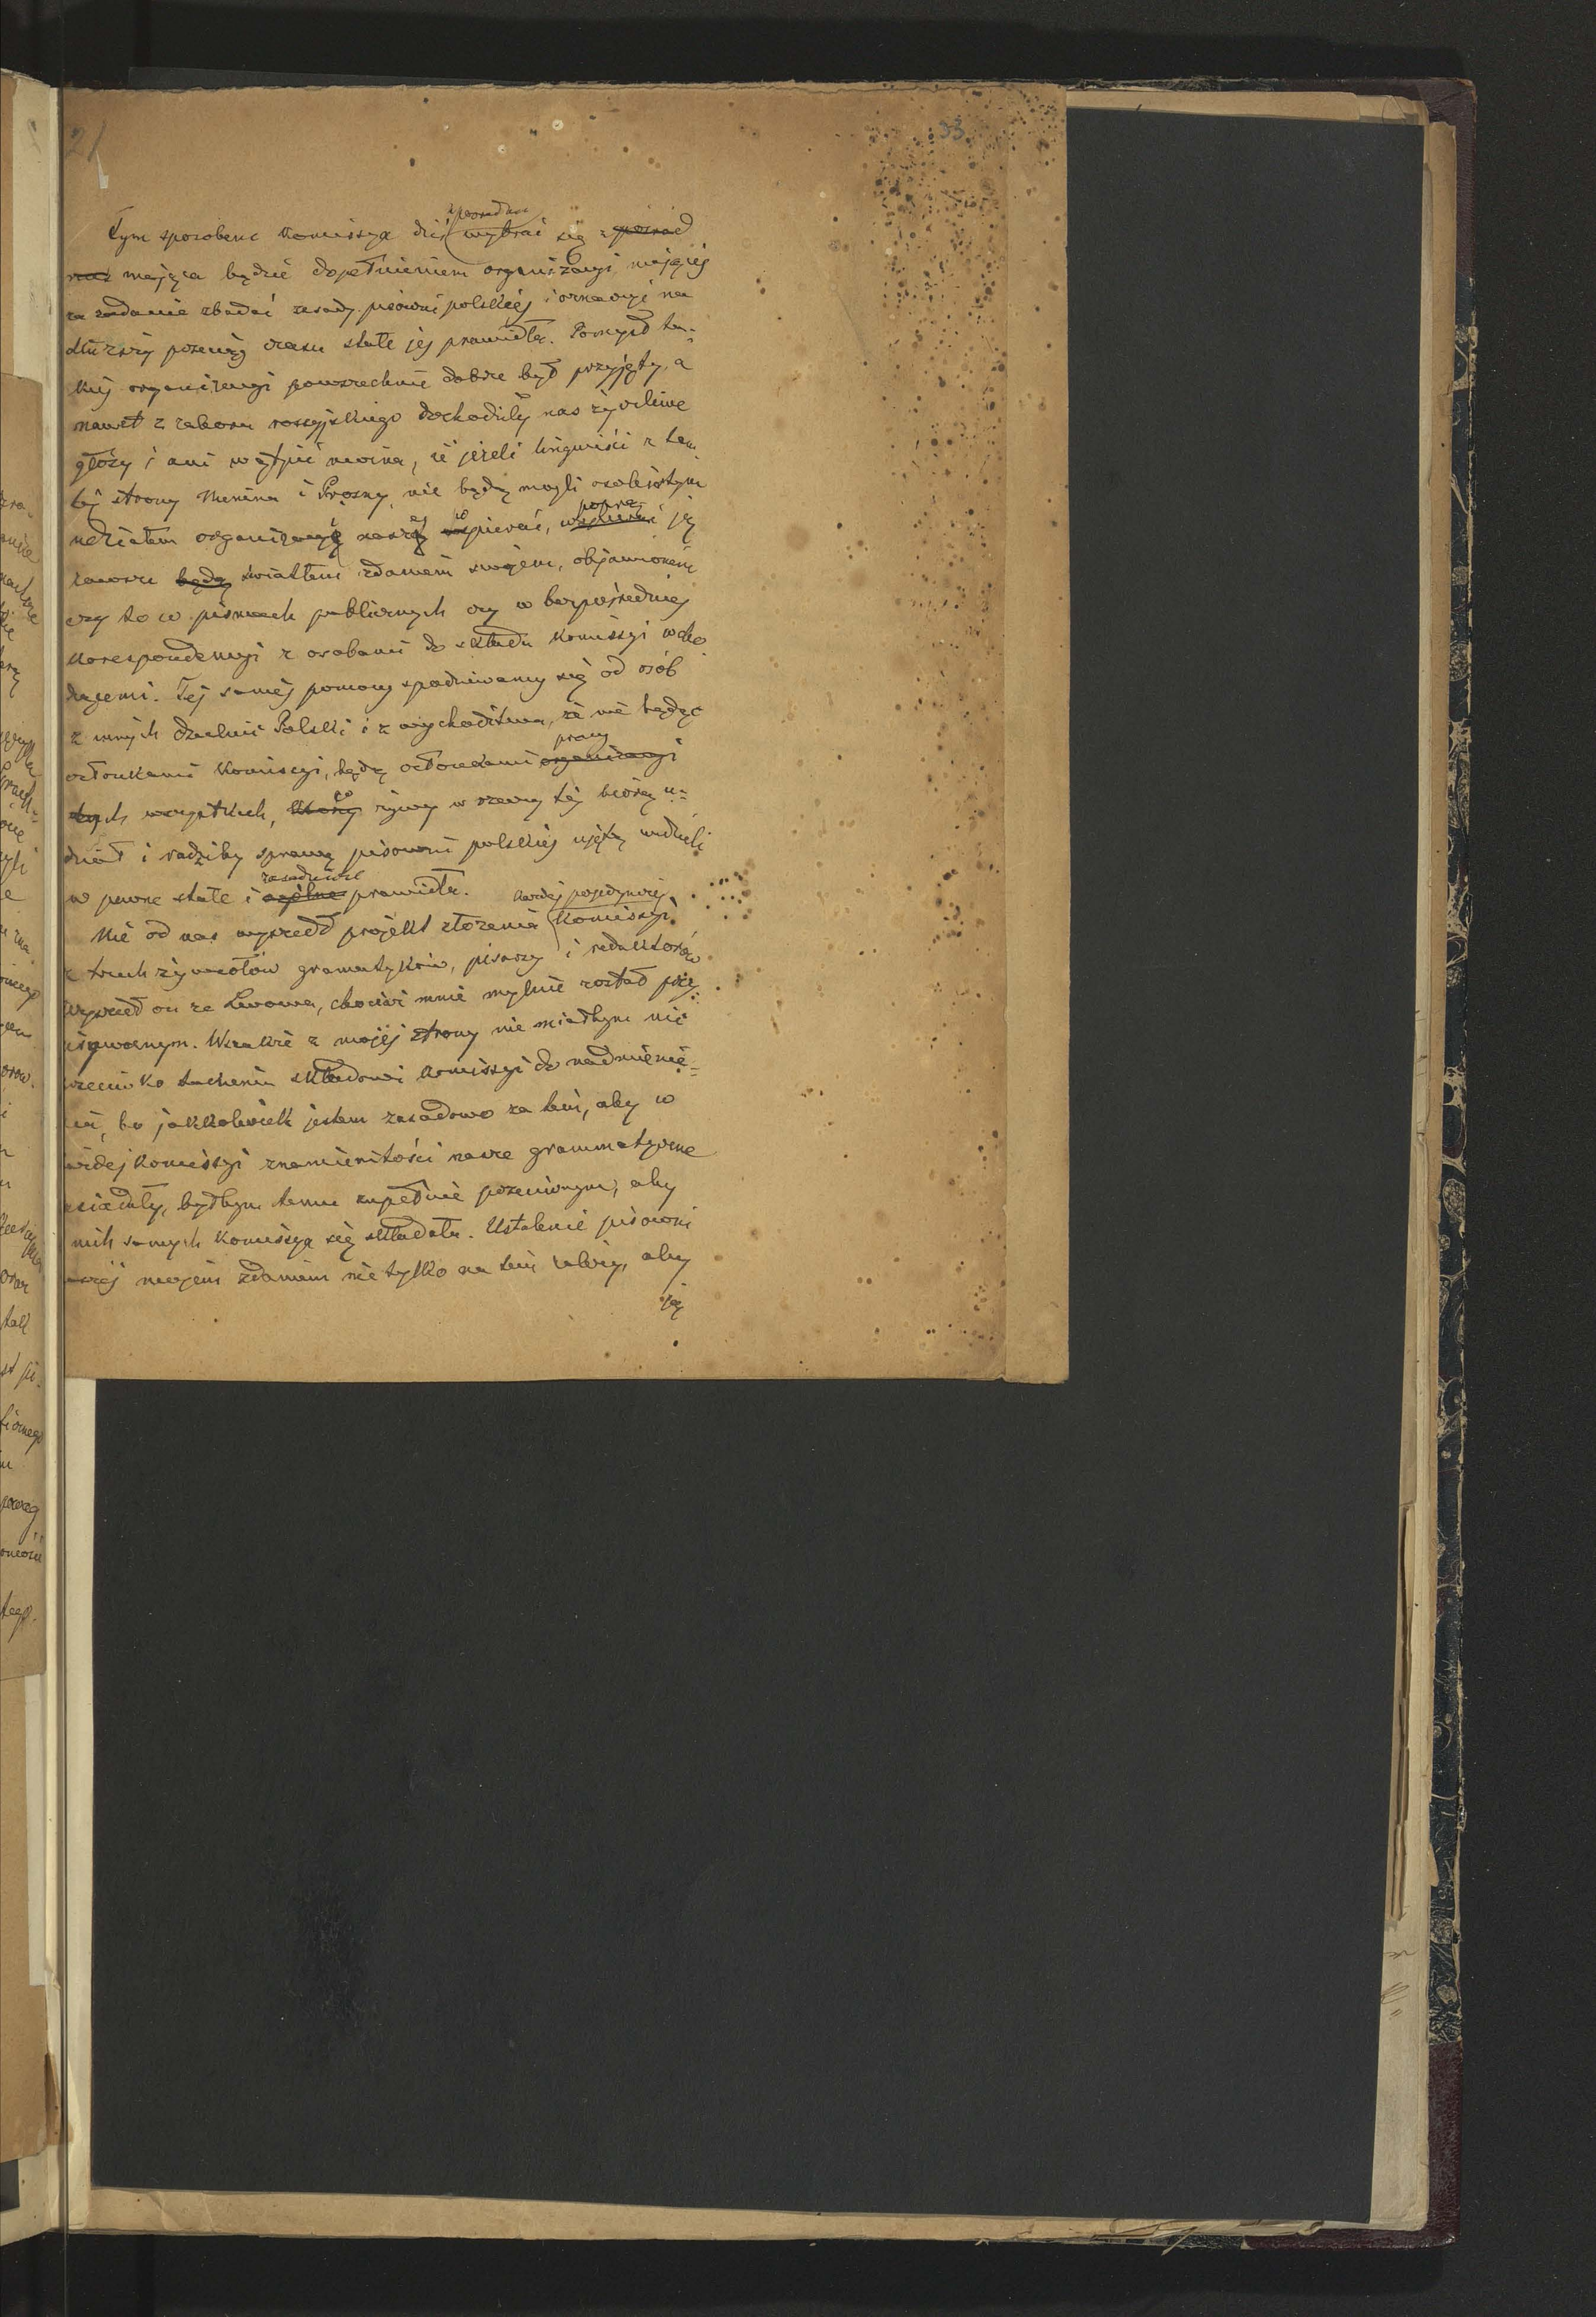 21
33
z pośród nas
Tym sposobem Komissya dziś wybrać się z pośród
nas mająca będzie dopełnieniem organizacyi, mającej
za zadanie zbadać zasady pisowni polskiej i oznaczyć na
dłuższy przeciąg czasu stałe jej prawidła. Pomysł ta=
kiej organizacyi powszechnie dobrze był przyjęty, a
nawet z zaboru rossyjskiego dochodziły nas życzliwe
głosy i ani wątpić można, iż jeżeli lingwiści z tam
tej strony Niemna i Prosny, nie będą mogli osobistym
udziałem organizacyi naszej wspierać, poprą ją
zawsze będą światłem zdaniem swojem, objawionem
czy to w pismach publicznych czy w bezpośredniej
korespondencyi z osobami do składu Komissyi wcho
dzącemi. Tej samej pomocy spodziewamy się od osób
z innych dzielnic Polski i z wychodźtwa, że nie będąc
członkami Komissyi, będą członkami pracy
organizacyi
tych wszystkich, co żywy w rzeczy tej biorą u=
dział i radziby sprawę pisowni polskiej ujętą widzieli
zasadnicze
w pewne stałe i ogólne prawidła.
każdej pojedynczej
Nie od nas wyszedł projekt złożenia Komissyi
z trzech żywiołów gramatyków, pisarzy i redaktorów
wyszedł on ze Lwowa, chociaż mnie mylnie został przy
pisywanym. Wszakże z mojej strony nie miałbym nic
przeciwko takiemu składowi Komissyi do nadmienie=
nia, bo jakkolwiek jestem zasadowo za tem, aby w
każdej Komissyi znamienitości nasze grammatyczne
zasiadały, byłbym temu zupełnie przeciwnym, aby
z nich samych Komissya się składała. Ustalenie pisowni
naszej mojem zdaniem nie tylko na tem zależy, aby
ją